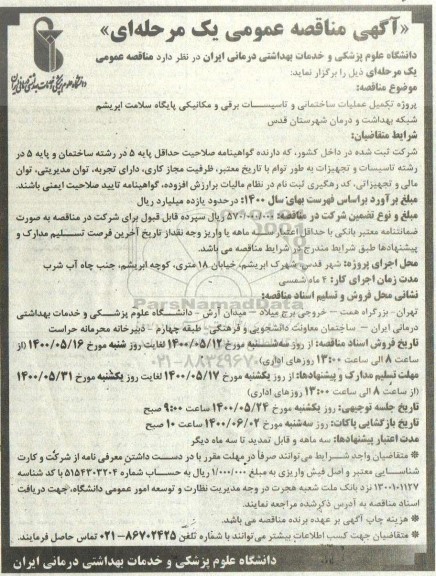 «آگهی مناقصه عمومی یک مرحله‌ای»
دانشگاه علوم پزشکی و خدمات بهداشتی درمانی ایران در نظر دارد مناقصه عمومی
یک مرحله‌ای ذیل را برگزار نماید:
موضوع مناقصه:
پروژه تکمیل عملیات ساختمانی و تاسیسات برقی و مکانیکی پایگاه سلامت ابریشم
شبکه بهداشت و درمان شهرستان قدس
شرایط متقاضیان:
شرکت ثبت شده در داخل کشور، که دارنده گواهینامه صلاحیت حداقل پایه ۵ در رشته ساختمان و پایه ۵ در
رشته تاسیسات و تجهیزات به طور توام با تاریخ معتبر، ظرفیت مجاز کاری، دارای تجربه، توان مدیریتی، توان
مالی و تجهیزاتی، کد رهگیری ثبت نام در نظام مالیات برارزش افزوده، گواهینامه تایید صلاحیت ایمنی باشند.
مبلغ برآورد براساس فهرست بهای سال ۱۴۰۰: در حدود یازده میلیارد ریال
مبلغ و نوع تضمین شرکت در مناقصه: ۵۷۰/۰۰۰/۰۰۰ ریال سپرده قابل قبول برای شرکت در مناقصه به صورت
ضمانتنامه معتبر بانکی با حداقل اعتبار سه ماهه یا واریز وجه نقد از تاریخ آخرین فرصت تسلیم مدارک و
پیشنهادها طبق شرایط مندرج در شرایط مناقصه می باشد.
محل اجرای پروژه: شهر قدس، شهرک ابریشم، خیابان ۱۸ متری، کوچه ابریشم، جنب چاه آب شرب
مدت زمان اجرای کار: ۴ ماه شمسی
نشانی محل فروش و تسلیم اسناد مناقصه:
تهران- بزرگراه همت – خروجی برج میلاد – میدان آرش – دانشگاه علوم پزشکی و خدمات بهداشتی
درمانی ایران – ساختمان معاونت دانشجویی و فرهنگی- طبقه چهارم - دبیرخانه محرمانه حراست
تاریخ فروش اسناد مناقصه: از روز سه‌شنبه مورخ ۱۴۰۰/۰۵/۱۲ لغایت روز شنبه مورخ ۱۴۰۰/۰۵/۱۶ (از
ساعت ۸ الی ساعت ۱۳:۰۰ روزهای اداری)
مهلت تسلیم مدارک و پیشنهادها: از روز یکشنبه مورخ ۱۴۰۰/۰۵/۱۷ لغایت روز یکشنبه مورخ ۱۴۰۰/۰۵/۳۱
(از ساعت ۸ الی ساعت ۱۳:۰۰ روزهای اداری)
تاریخ جلسه توجیهی: روز یکشنبه مورخ ۱۴۰۰/۰۵/۲۴ ساعت ۹:۰۰ صبح
تاریخ بازگشایی پاکات: روز سه‌شنبه مورخ ۱۴۰۰/۰۶/۰۲ ساعت ۱۰ صبح
مدت اعتبار پیشنهادها: سه ماهه و قابل تمدید تا سه ماه دیگر
* متقاضیان واجد شرایط می‌توانند صرفاً در مهلت مقرر با در دست داشتن معرفی نامه از شرکت و کارت
شناسایی معتبر و اصل فیش واریزی به مبلغ ۱/۰۰۰/۰۰۰ ریال به حساب شماره ۵۱۵۴۳۰۳۲۰۴ با کد شناسه
۱۳۰۰۱۰۱۱۲۷ نزد بانک ملت شعبه هجرت در وجه مدیریت نظارت و توسعه امور عمومی دانشگاه، جهت دریافت
اسناد مناقصه به آدرس ذکر شده مراجعه نمایند.
* هزینه چاپ آگهی بر عهده برنده مناقصه می باشد.
* متقاضیان جهت کسب اطلاعات بیشتر می‌توانند با شماره تلفن ۸۶۷۰۲۴۲۵-۰۲۱ تماس حاصل فرمایند.
دانشگاه علوم پزشکی و خدمات بهداشتی درمانی ایران
ParsNamadData
۰۲۱-۸۸۳۴۹۶۷۰